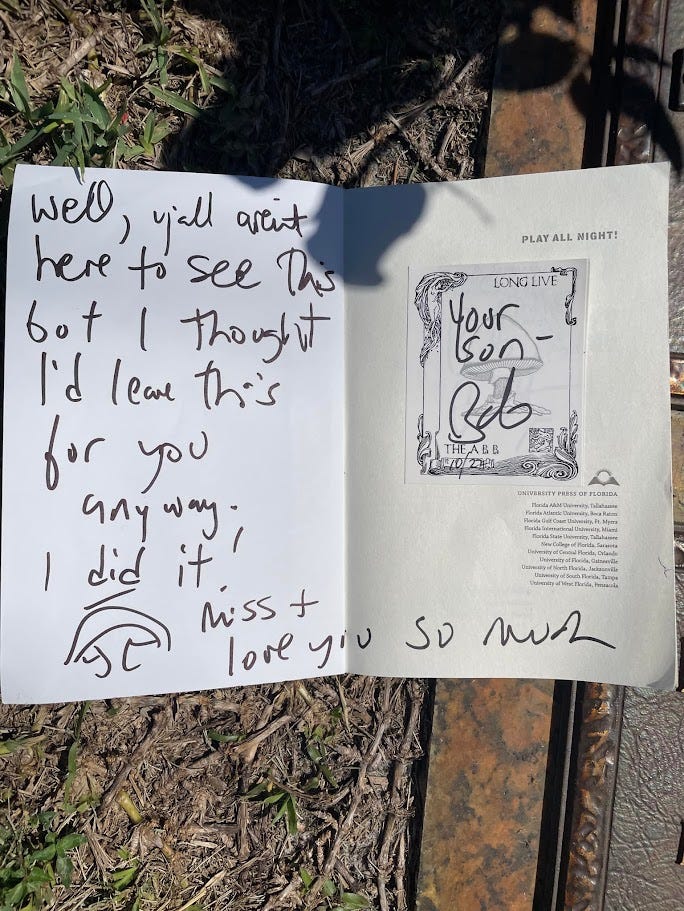 Well, y'all aren't
here to see this
but I thought
I'd leave this
for you
anyway.
I did it!
miss +
love you so much
PLAY ALL NIGHT!
LONG LIVE
your
son-
Bob
THE A B B
UNIVERSITY PRESS OF FLORIDA
Florida A&M University, Tallahassee
Florida Atlantic University, Boca Raton
Florida Gulf Coast University, Ft. Myers
Florida International University, Miami
Florida State University, Tallahassee
New College of Florida, Sarasota
University of Central Florida, Orlando
University of Florida, Gainesville
University of North Florida, Jacksonville
University of South Florida, Tampa
University of West Florida, Pensacola